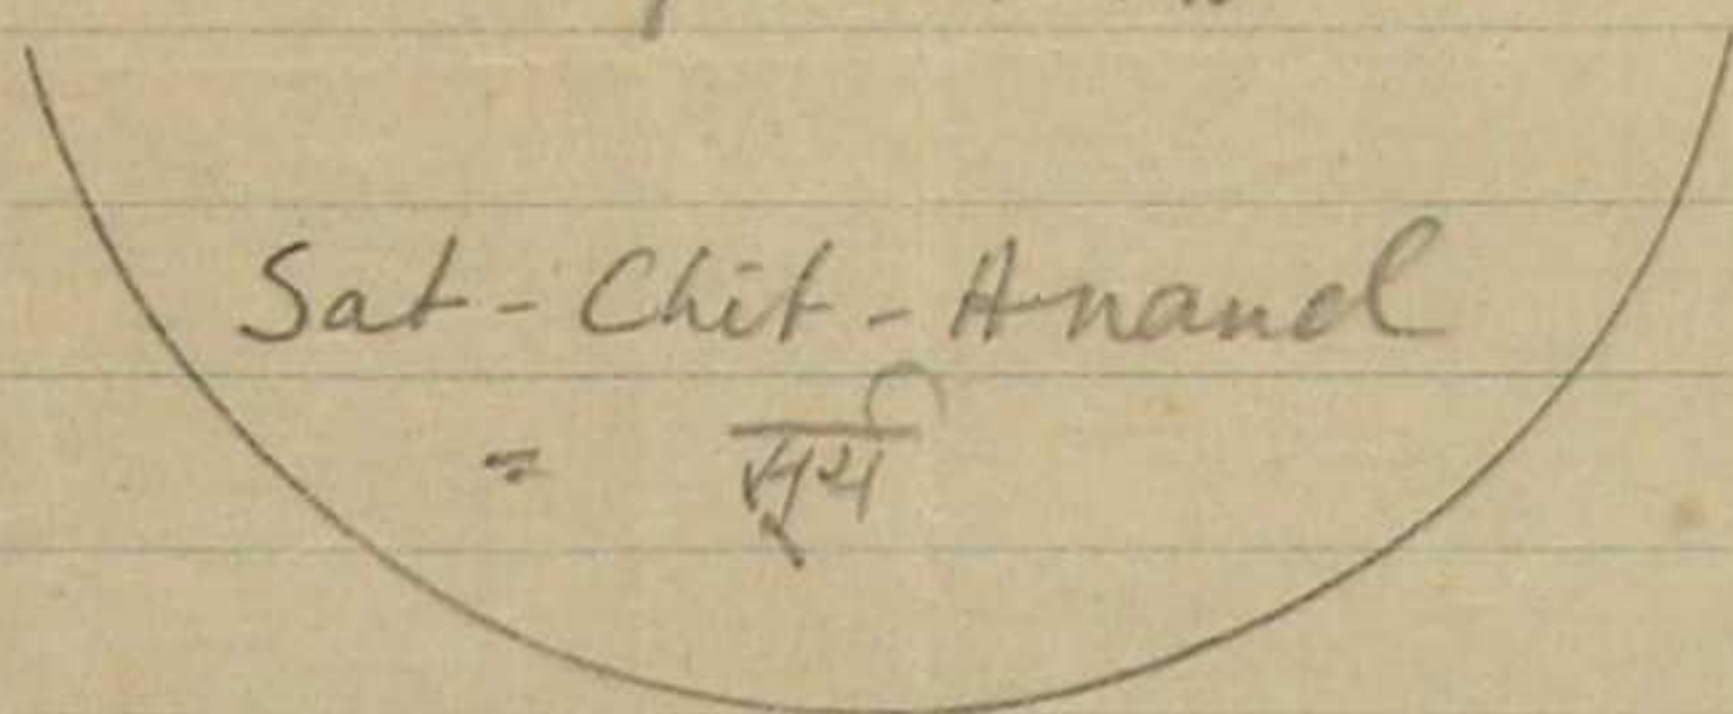 Sat - Chit - Anand
= सूर्य